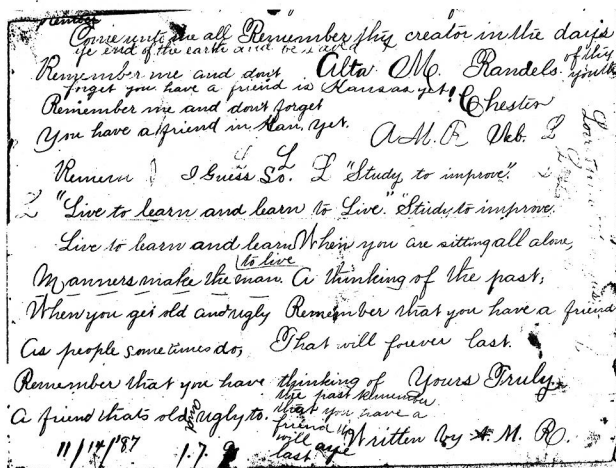 Remem
Come unto me all Remember thy creator in the days
ye end of the earth and be saved of thy
Remember me and dont Alta M. Randels. youth
forget you have a friend in Kansas yet! Chester
Remember me and dont forget
You have a friend in Kan. yet. A. M. R. Neb. L
Remem I Guess So. L "Study to improve".
L "Live to learn and learn to Live." "Study to improve.
Live to learn and learn When you are sitting all alone,
to live
Manners make the man. A thinking of the past;
When you get old and ugly Remember that you have a friend
As people sometimes do, That will forever last.
Remember that you have thinking of Yours Truly
the past remember
A friend thats old and ugly to. that you have a
friend
11/14/'87 1.7.9 will aye Written by A. M. R.
last